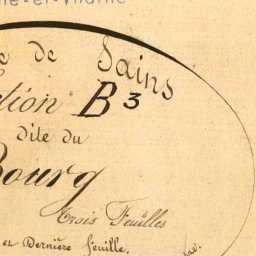 de Sains
ction B3
dite du
Bourg
Trois Feuilles
et Dernière feuille.